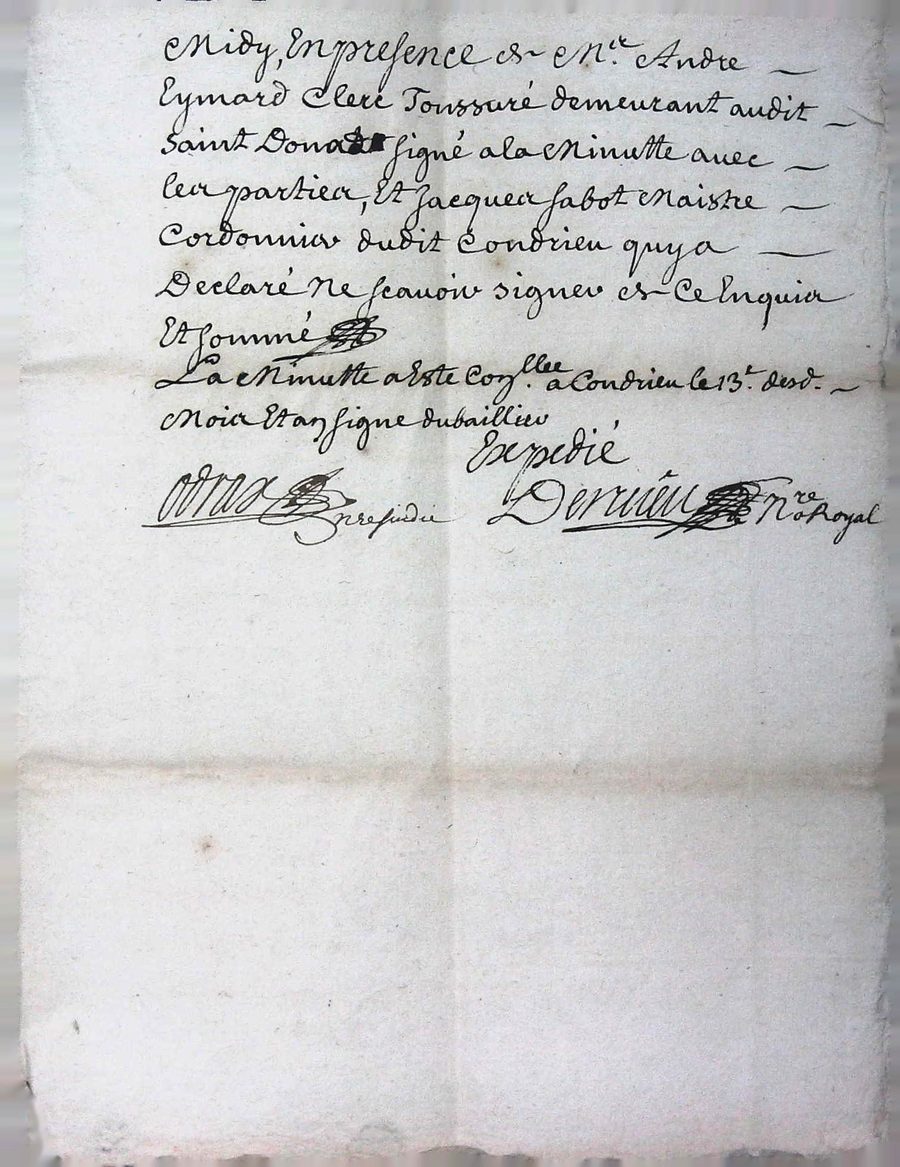 Midy, En presence de M.er Andre
Eymard Clerc Tonssuré demeurant audit
Saint Donat signé a la Minutte avec
les parties, Et Jacques Sabot Maistre
Cordonnier dudit Condrieu quy a
Declaré Ne scavoir signer de Ce Enquis
Et sommé
La Minutte a Este Con.llee a Condrieu le 13.e desd.
Mois Et an signe dubaillier
Expedié
odrax
Dervieu N.re Royal